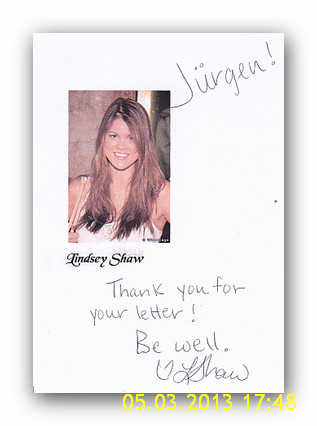 Jürgen!
Lindsey Shaw
Thank you for
your letter!
Be well.
LShaw
05.03.2013 17:48